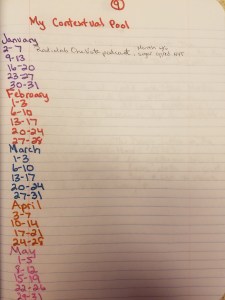 9
My Contextual Pool
January
2-7 podcast
9-13
16-20
23-27
30-31
February
1-3
6-10
13-17
20-24
27-28
March
1-3
6-10
13-17
20-24
27-31
April
3-7
10-14
17-21
24-28
May
1-5
8-12
15-19
22-26
29-31